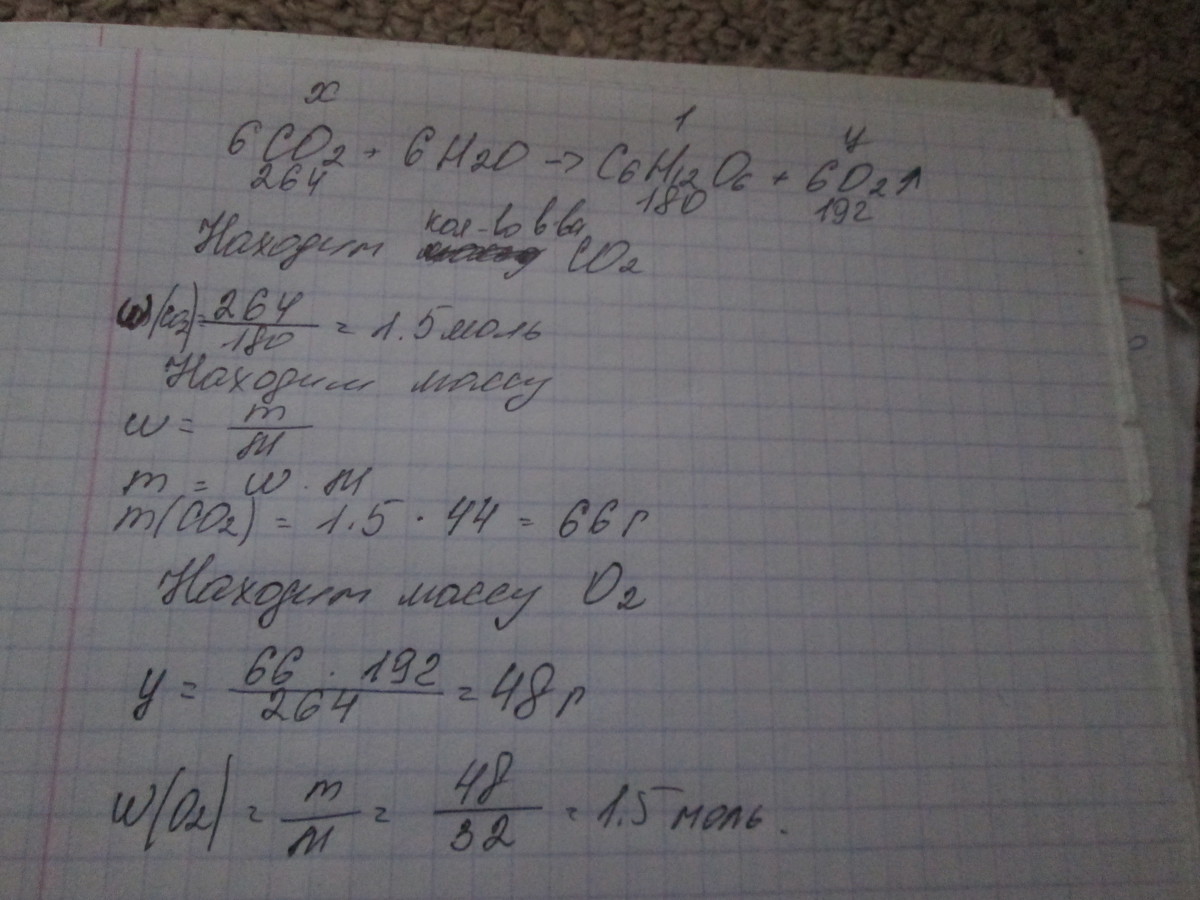 x 1 y
6CO2 + 6H2O -> C6H12O6 + 6O2↑
264 180 192
кол-во в-ва
Находим CO2
W(CO2) = 264/180 = 1.5 моль
Находим массу
w = m/M
m = w · M
m(CO2) = 1.5 · 44 = 66 г
Находим массу O2
y = 66 · 192/264 = 48 г
W(O2) = m/M = 48/32 = 1.5 моль.